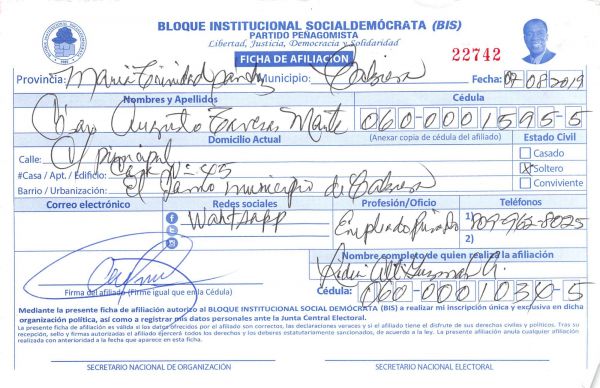 BLOQUE INSTITUCIONAL SOCIALDEMÓCRATA (BIS)
PARTIDO PEÑAGOMISTA
Libertad, Justicia, Democracia y Solidaridad
FICHA DE AFILIACIÓN
22742
Provincia: María Trinidad Sanchez Municipio: Cabrera Fecha: 07-08-2019
Nombres y Apellidos Cédula
Augusto Taveras 060-0001595-5
Domicilio Actual (Anexar copia de cédula del afiliado) Estado Civil
Calle: C/ Principal Casado
#Casa / Apt. / Edificio: Casa Nº 45 X Soltero
Barrio / Urbanización: El municipio de Cabrera Conviviente
Correo electrónico Redes sociales Profesión/Oficio Teléfonos
WahtSapp Empleado Privado 1) 809-962-8025
2)
Nombre completo de quien realizó la afiliación
Guzman
Firma del afiliado (Firme igual que en la Cédula) Cédula: 060-0001034-5
Mediante la presente ficha de afiliación autorizo al BLOQUE INSTITUCIONAL SOCIAL DEMÓCRATA (BIS) a realizar mi inscripción única y exclusiva en dicha
organización política, así como a registrar mis datos personales ante la Junta Central Electoral.
La presente ficha de afiliación es válida si los datos ofrecidos por el afiliado son correctos, las declaraciones veraces y si el afiliado tiene el disfrute de sus derechos civiles y políticos. Tras su
recepción, sello y firmas autorizadas el afiliado ejercerá todos los derechos y los deberes estatutariamente sancionados, de acuerdo a la ley. La presente afiliación anula cualquier afiliación
realizada con anterioridad a la fecha que aparece en esta ficha.
SECRETARIO NACIONAL DE ORGANIZACIÓN SECRETARIO NACIONAL ELECTORAL